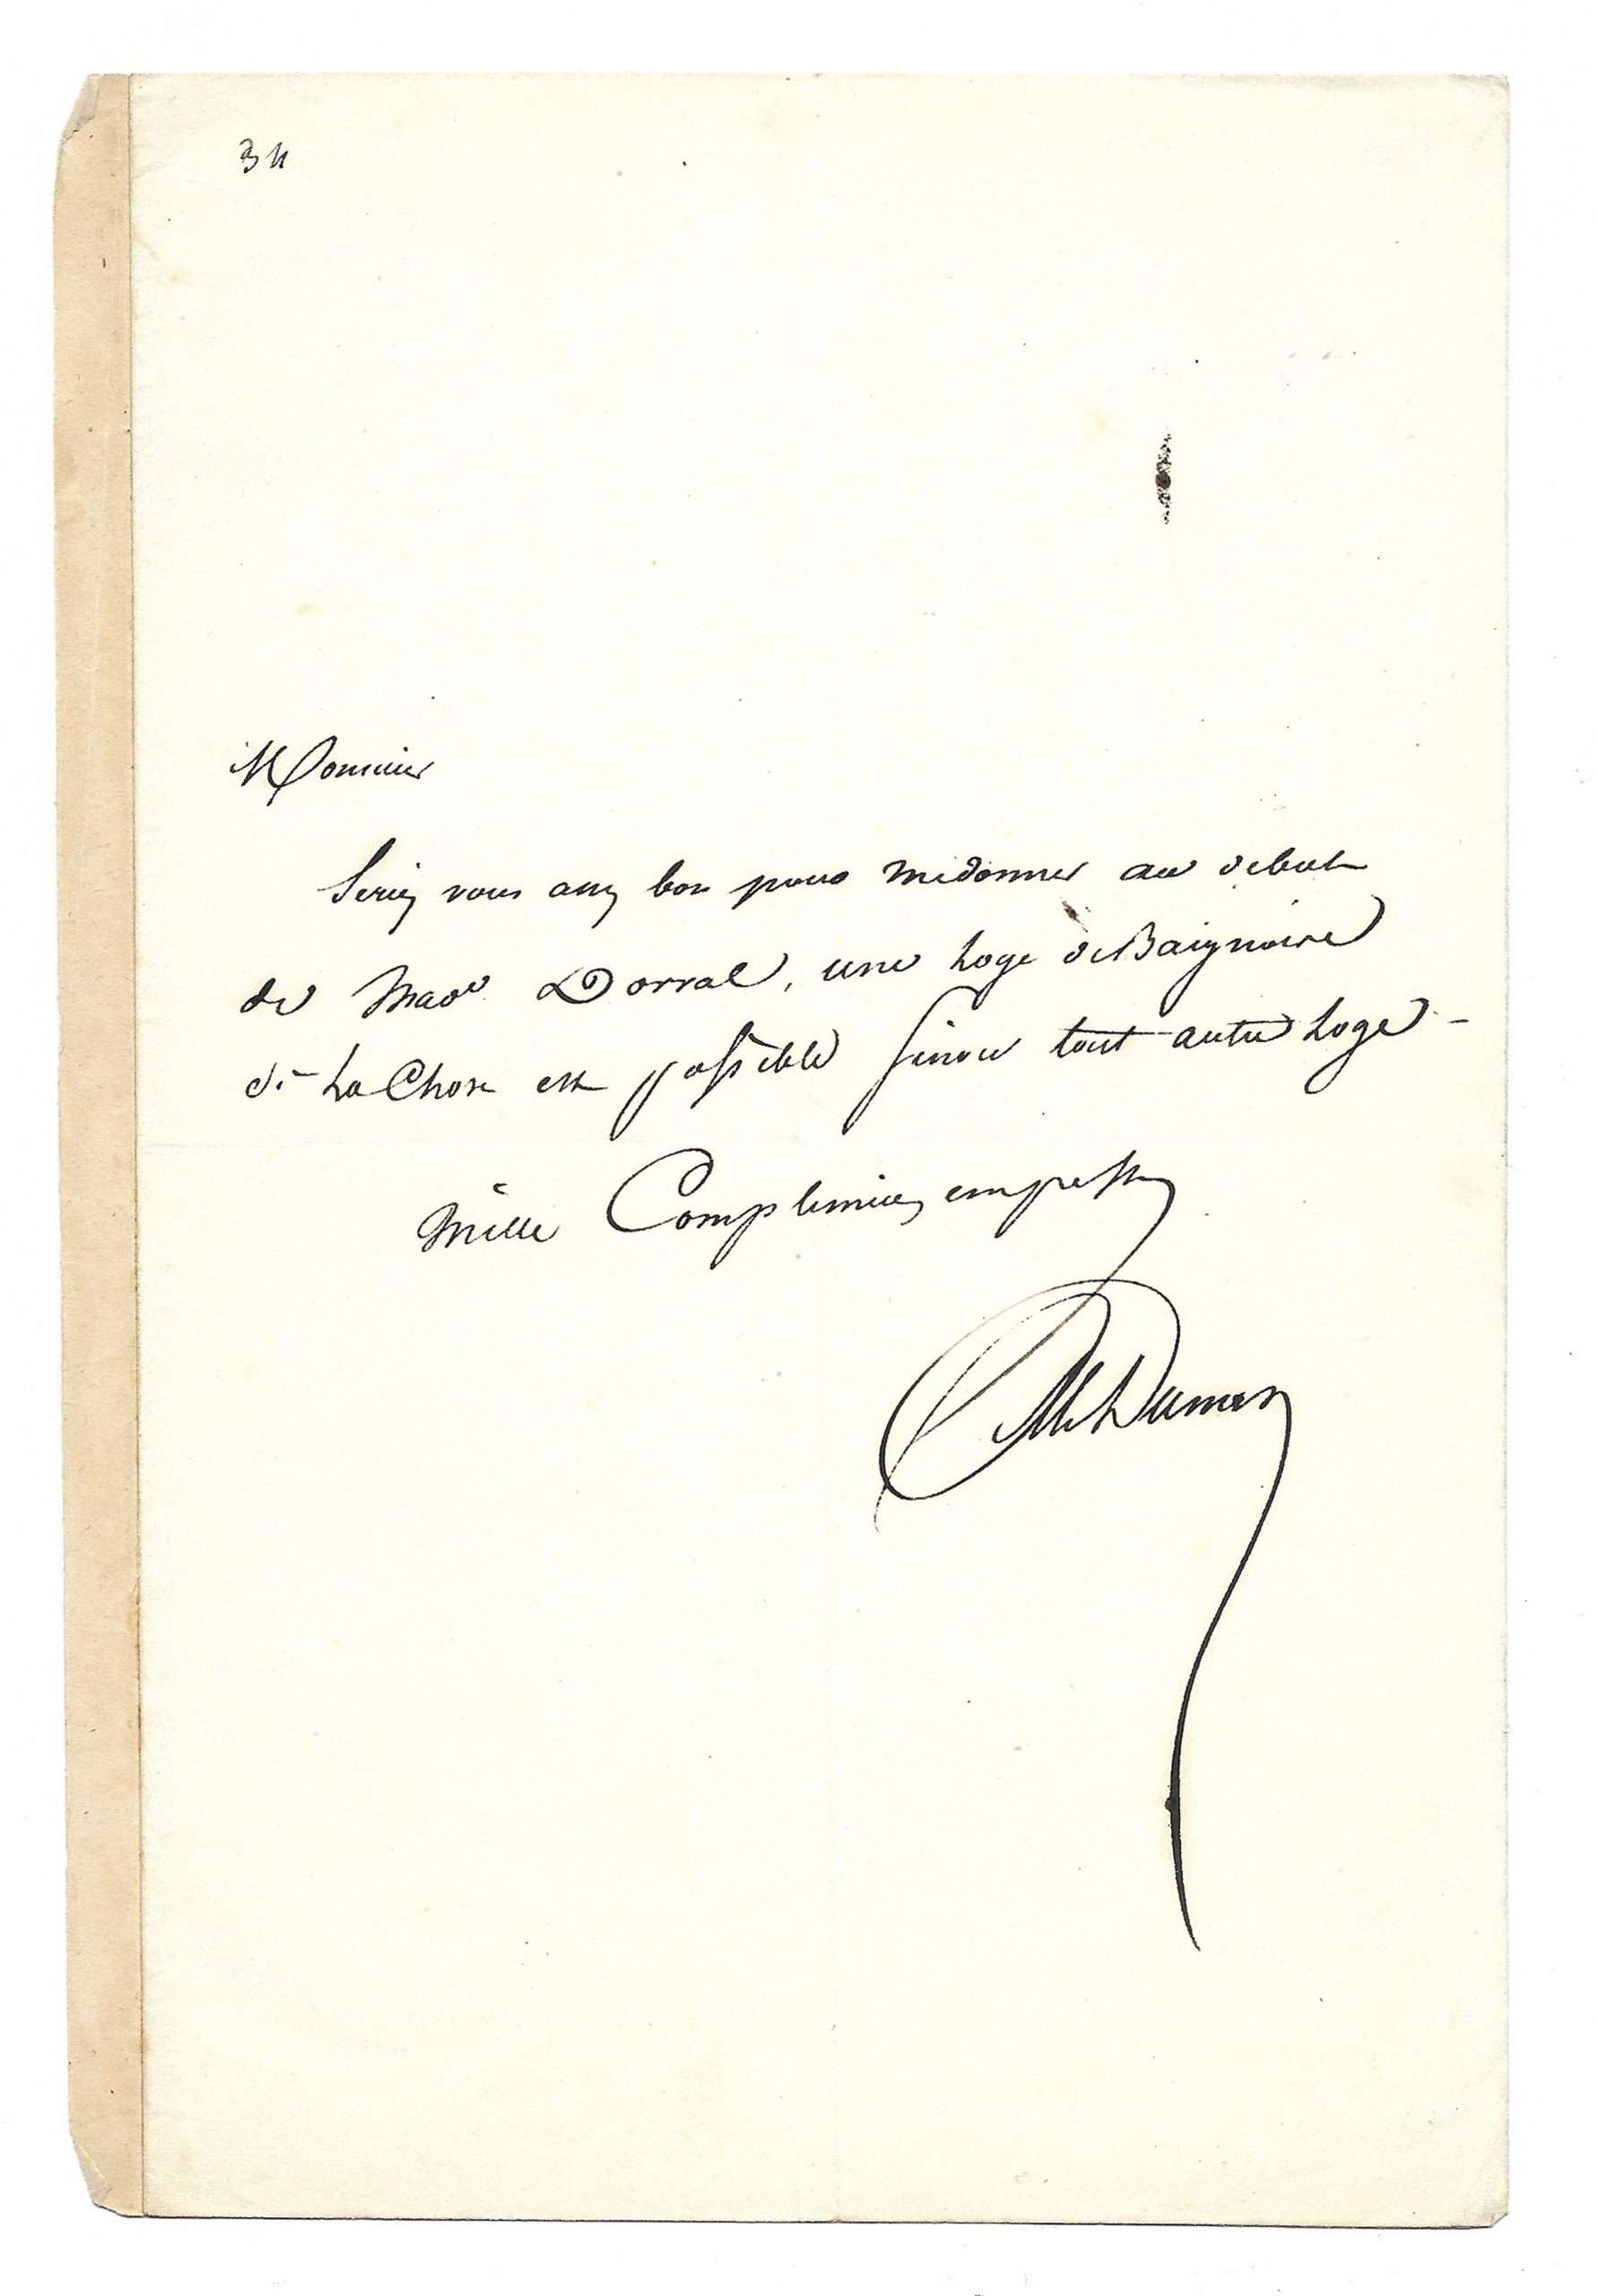 34
Monsieur
Seriez vous assez bon pour me donner au debut
de Made Dorval, une Loge de Baignoire
si La Chose est possible sinon tout autre Loge -
Mille Complimens empressés
Al Dumas